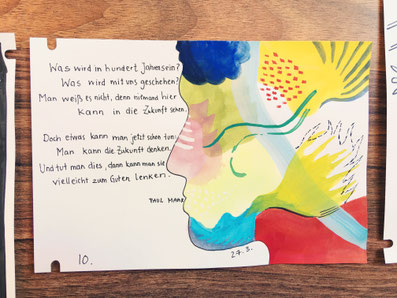 Was wird in hundert Jahren sein?
Was wird mit uns geschehen?
Man weiß es nicht, denn niemand hier
kann in die Zukunft sehen.
Doch etwas kann man jetzt schon tun:
Man kann die Zukunft denken.
Und tut man dies, dann kann man sie
vielleicht zum Guten lenken.
PAUL MAAR
10.
27.3.